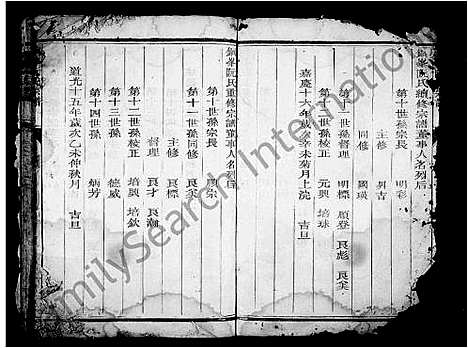 峯阮氏續修宗譜董事人名列后
第十一世孫宗長 明彩
主修 昇吉
同修 國瑛
第十一世孫督理 明標 願登 良彪 良奚
第十二世孫校正 元興 培珠
嘉慶十六年歲辛未菊月上浣 吉旦
峯阮氏重修宗譜董事人名列后
第十世孫宗長 願宗
第十一世孫同修 良奚
主修 良標
督理 良才 良潮
第十二世孫校正 培興 培欽
第十三世孫 德威
第十四世孫 炳芳
道光十五年歲次乙未仲秋月 吉旦
FamilySearch International